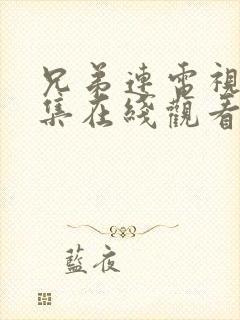 兄弟連電視
集在綫觀看
藍夜